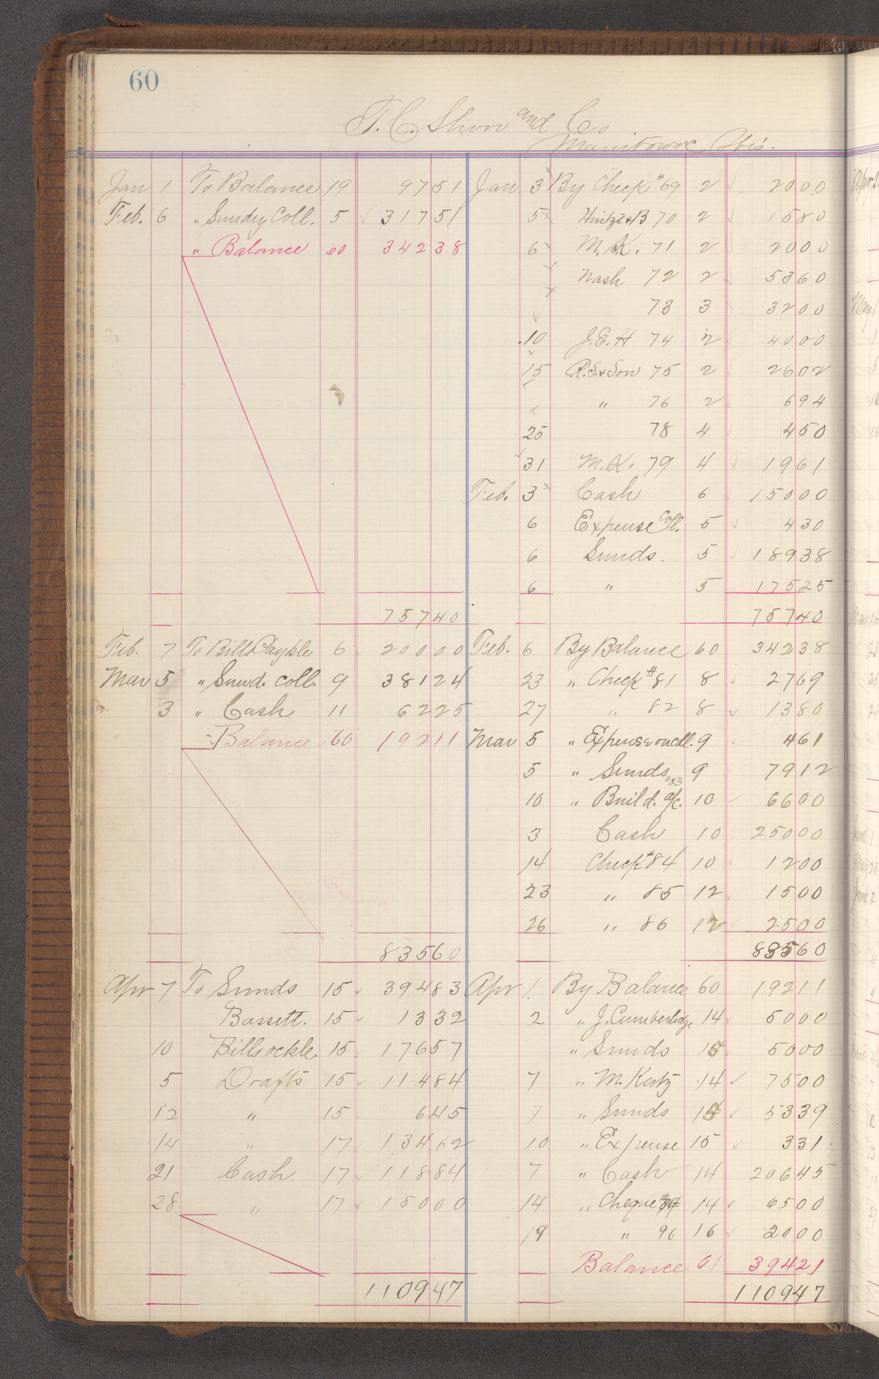 60
T. C. Shove and Co.
Manitowoc Wis.
Jan 1 To Balance 19 9751
Feb. 6 " Sundry Coll. 5 31751
" Balance 60 34238
75740
Feb. 7 To Bills Payble 6 20000
Mar 5 " Sund. Coll. 9 38124
3 " Cash 11 6225
" Balance 60 19211
83560
Apr 7 To Sunds 15 39483
Bassett. 15 1332
10 Bills 15 17657
5 Drafts 15 11484
12 " 15 645
14 " 17 13462
21 Cash 17 11884
28 " 17 15000
110947
Jan 3 By Check #69 2 2000
5 70 2 1580
6 M. K. 71 2 2000
Nash 72 2 5360
73 3 3200
10 J.E.H 74 2 4000
15 R.S & Son 75 2 2602
" 76 2 694
25 78 4 450
31 M.K. 79 4 1961
Feb. 3 Cash 6 15000
6 Expense Coll. 5 430
6 Sunds. 5 18938
6 " 5 17525
75740
Feb. 6 By Balance 60 34238
23 " Check #81 8 2769
27 " 82 8 1380
Mar 5 " Expense on coll. 9 461
5 " Sunds 9 7912
10 " Build. a/c. #83 10 6600
3 Cash 10 25000
14 Check #84 10 1200
23 " 85 12 1500
26 " 86 12 2500
83560
Apr 1 By Balance 60 19211
2 " J. Cumberlidge 14 5000
" Sunds 15 5000
7 " M. Kertz 14 7500
7 " Sunds 15 5339
10 " Expense 15 331
7 " Cash 14 20645
14 " Cheque 14 6500
19 " 96 16 2000
Balance 61 39421
110947